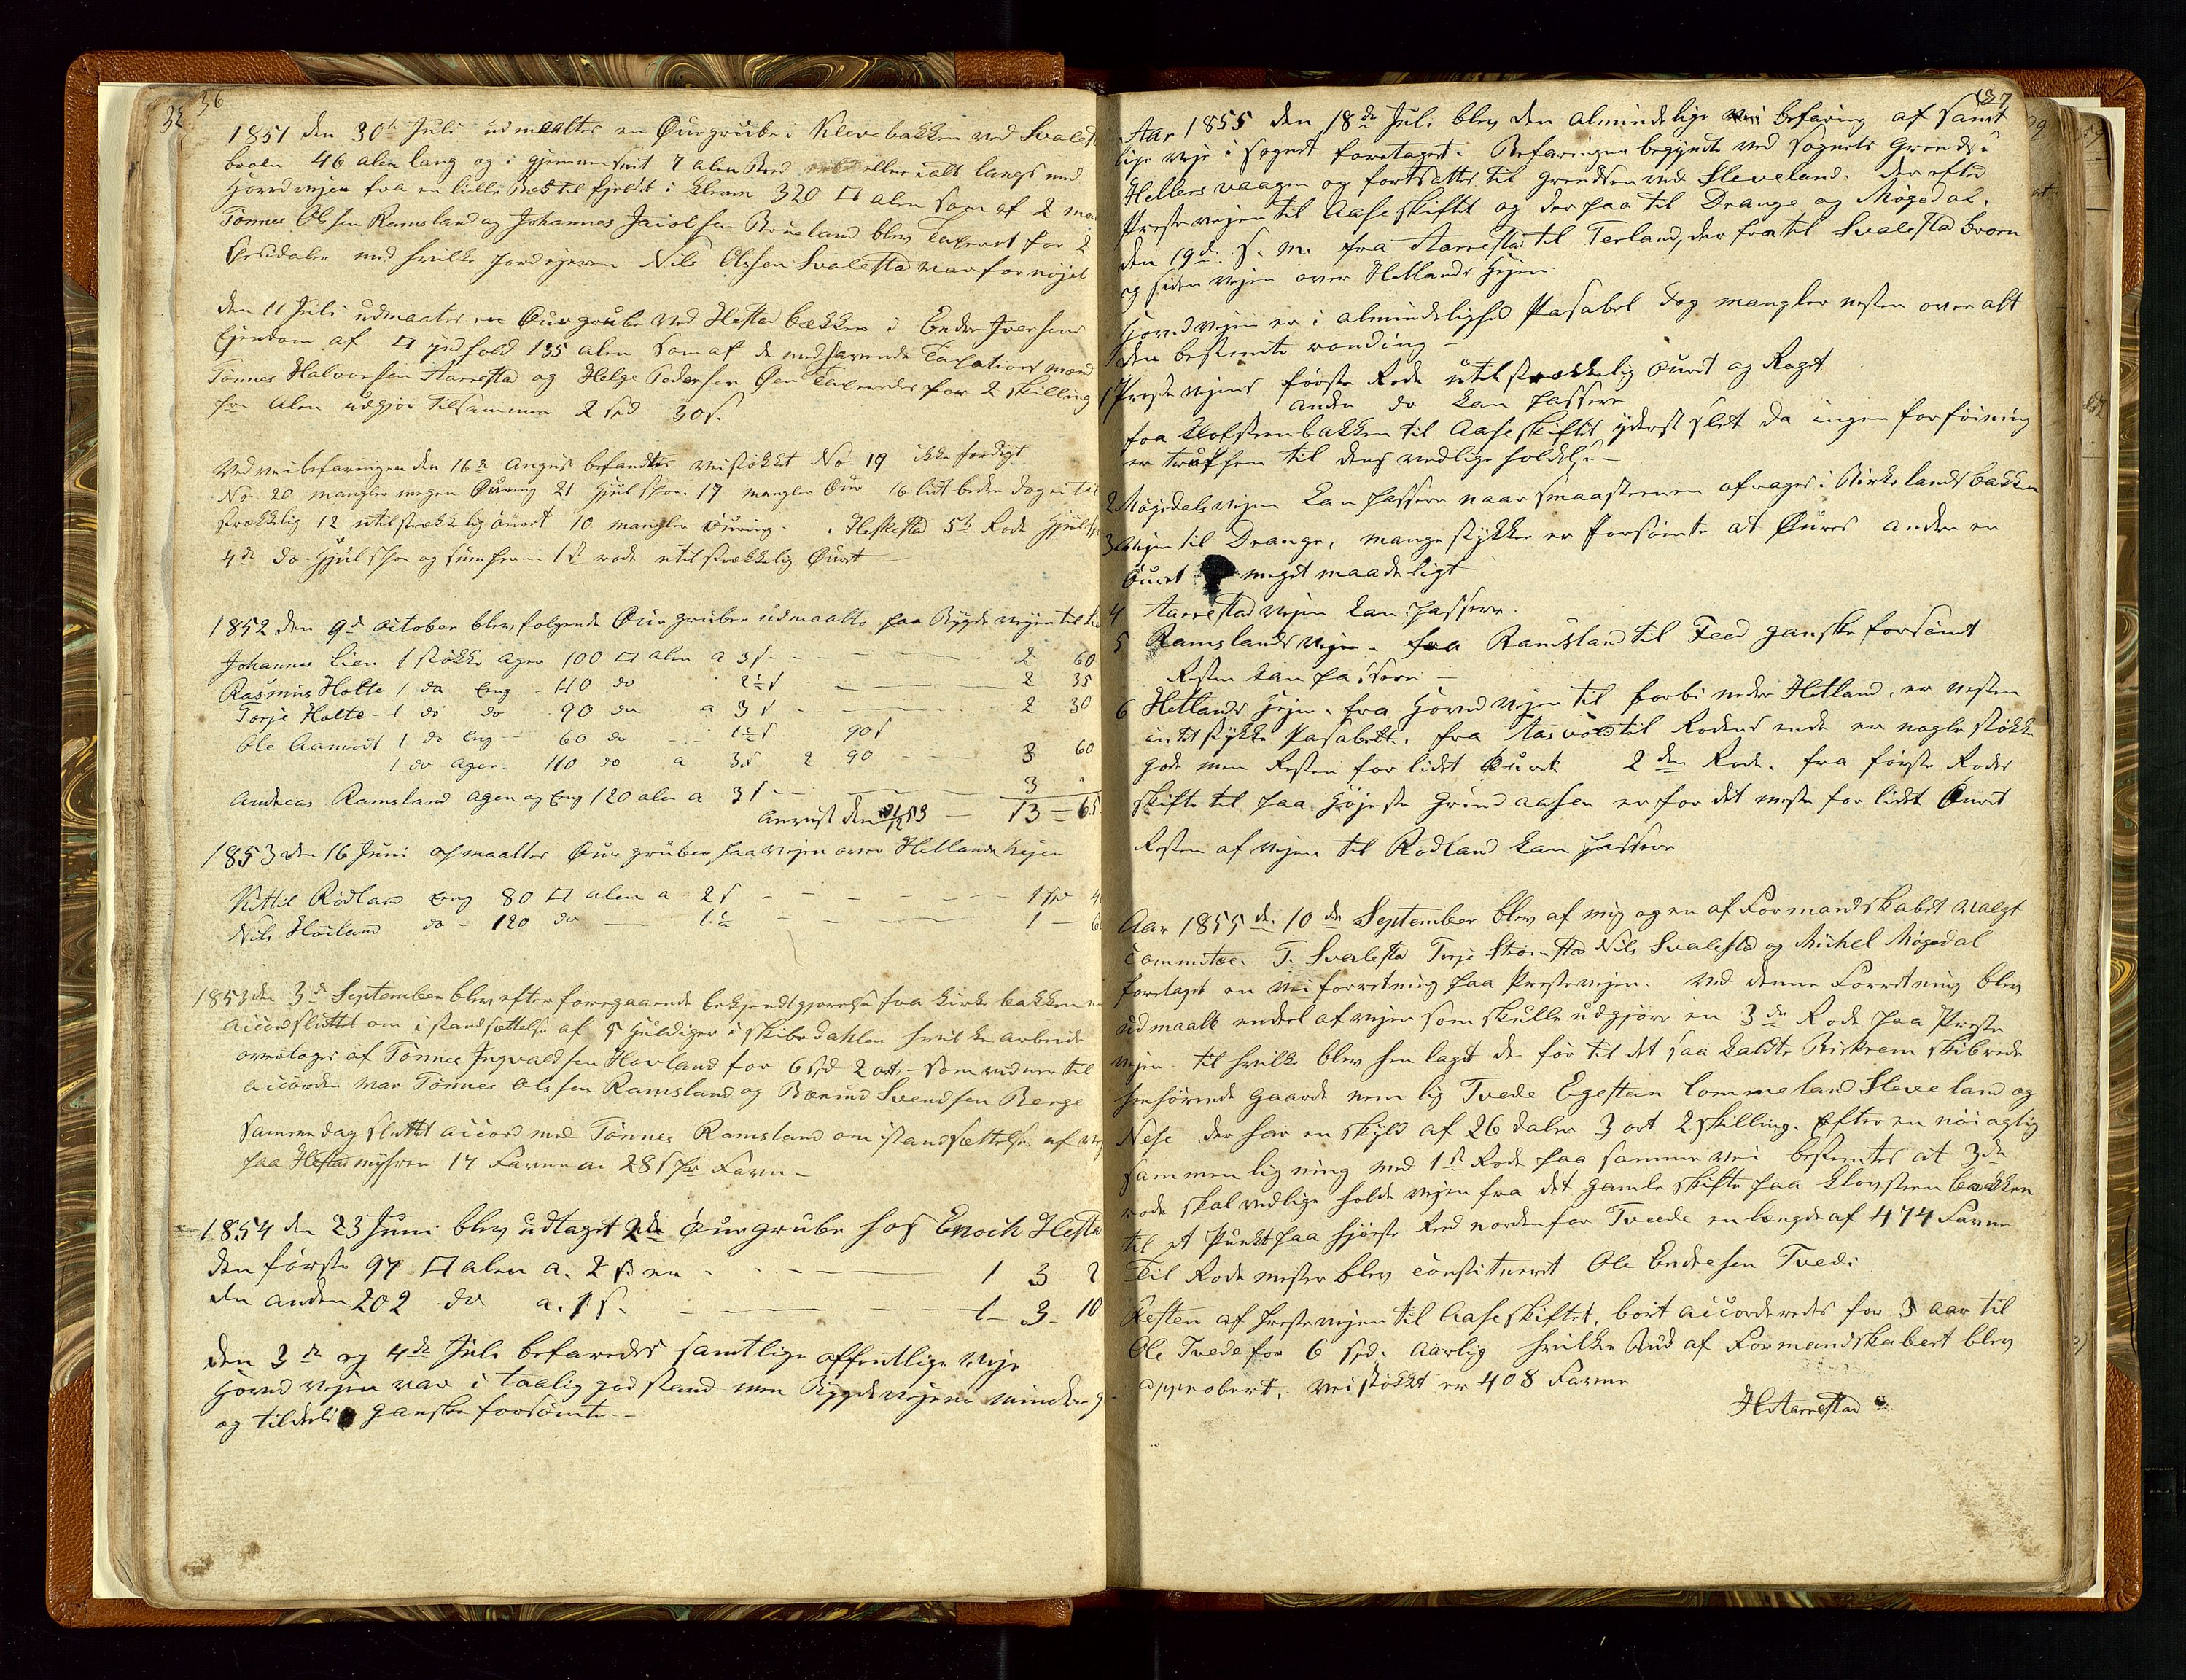 32 36
1851 den 30te Juli udmaaltes en Øurgrube i Klevebakken ved Svalest
broen 46 alen lang og i gjennemsnit 7 alen Bred eller ialt langs med
Hovedvejen fra en lille Bæk til fjeldet i Kleven 320 □ alen som af 2 mæ
Tønnes Olsen Ramsland og Johannes Jacobsen Brueland blev Taxeret for 2
Spesidaler med hvilke jordejeren Nils Olssen Svalestad var fornøjet
den 11 Juli udmaaltes en Øurgrube ved Hestad bækken i Endre Iversens
Ejendom af □ indhold 135 alen som af de medhavende Taxations mænd
Tønnes Halvorsen Aarrestad og Helge Pedersen Øen Taxeredes for 2 skilling
pr alen udgjør tilsammen 2 spd 30 s.
Ved veibefaringen den 16de August befandtes veistøkket No 19 ikke færdigt
No 20 mangler megen Øuring 21 Hjulspor 17 mangler Øur 16 lidt bedre dog util
strækkelig 12 utilstrækkelig ôuret 10 mangler ôuring. Heskestad 5te Rode Hjulspo
4de do Hjulspor og 1ste rode utilstrækkelig Øuret
1852 den 9de October blev følgende Øurgruber udmaalte paa Bygdevejen til Li
Johannes Lien 1 støkke ager 100 □ alen a 3 s. 2 60
Rasmus Holte 1 do Eng 110 do 2½ s 2 35
Torje Holte 1 do do 90 do a 3 s 2 30
Ole Aamodt 1 do Eng 60 do 1½ s. 90 s
1 do ager 110 do a 3 s 2 90 3 60
Andreas Ramsland ager og Eng 120 alen a 3 s 3
Anvist den 21/12 53 13 = 65
1853 den 16 Juni opmaaltes Øurgruber paa vejen over Hetlands Hejen
Kittil Rødland Eng 80 □ alen a 2 s 1 sp 4
Nils Høiland do 120 do 1½ 1 6
1853 den 3de September blev efter foregaaende bekjendtgjørelse fra kirkebakken
accord sluttet om istandsættelse af 5 Huldiger i Skibsdahlen hvilke arbeide
overtoges af Tønnes Ingvaldsen Hovland for 6 spd 2 ort som vidner til
accorden var Tønnes Olssen Ramsland og Bærend Svendsen Berge
Samme dag sluttet accord med Tønnes Ramsland om istandsættelse af vej
paa Hestad myhren 14 Favne a 28 s pr Favn
1854 den 23 Juni blev udtaget 2de Øurgrube hos Enoch Hesta
den første 97 □ alen a. 2 s er 1 3 2
den anden 202 do a. 1 s. 1 3 10
den 3de og 4de Juli befaredes samtlige offentlige veje
Hovedvejen var i taalig god stand men Bygdevejene mindre g
og tildels ganske forsømte
37
Aar 1855 den 18de Juli blev den almindelige vei befaring af samt
lige veje i sognet foretaget. Befaringen begyndte ved sognets Grendse i
Hellersvaagen og fortsattes til grendsen ved Sleveland. der efter
Prestevejen til Aaseskiftet og derpaa til Drange og Møgedal.
den 19de s. m. fra Aarrestad til Terland, derfra til Svalestad broen
og siden vejen over Hetlands Hejen.
Hovedvejen er i almindelighed Pasabel dog mangler nesten over alt
den bestemte ronding
1 Prestevejens første Rode utilstrækkelig ôuret og Røgt
anden do kan passere
fra Klopsteenbakken til Aaseskiftet yderst slet da ingen forføining
er truffen til dens vedligeholdelse
2 Møgedalsvejen kan passere naar smaastenene afrages i Birkelandsbakken
3 Vejen til Drange, mange støkker er forsømte at Øures andre er
Øuret meget maadeligt
4 Aarrestadvejen kan passere.
5 Ramslandsvejen fra Ramsland til Feed ganske forsømt
Resten kan passere
6 Hetlands Hejen. fra Hovedvejen til forbi nedre Hetland, er nesten
intet støkke Pasabelt. fra Aasvold til Rodens ende er nogle støkke
gode men Resten for lidet Øuret 2den Rode. fra første Rodes
skifte til paa Højeste Grind aasen er for det meste for lidet Øuret
Resten af vejen til Rødland kan passere
Aar 1855 d. 10de September blev af mig og en af Formandskabet valgt
Committee. T. Svalestad Torje Strømstad Nils Svalestad og Michel Møgedal
foretaget en veiforretning paa Prestevejen. Ved denne Forretning blev
udmaalt endeel af vejen som skulle udgjøre en 3de Rode paa Preste
vejen til hvilke blev henlagt de før til det saa kaldte Birkrem skibrede
henhørende Gaarde nemlig Tvede Egesteen Lommeland Sleveland og
Nese der har en skyld af 26 daler 3 ort 2 skilling. Efter en nøiagtig
sammenligning med 1ste Rode paa samme vei bestemtes at 3de
rode skal vedligeholde vejen fra det gamle skifte paa Klopsteenbakken
til et Punkt paa Sjørste Sed nordenfor Tvede en længde af 474 Favne
Til Rodemester blev constitueret Ole Endresen Tvede
Resten af prestevejen til Aaseskiftet, bort accorderedes for 3 aar til
Ole Tvede for 6 spd. aarlig hvilke Bud af Formandskabet blev
approbert, veistøkket er 408 Favne
H Aarrestad